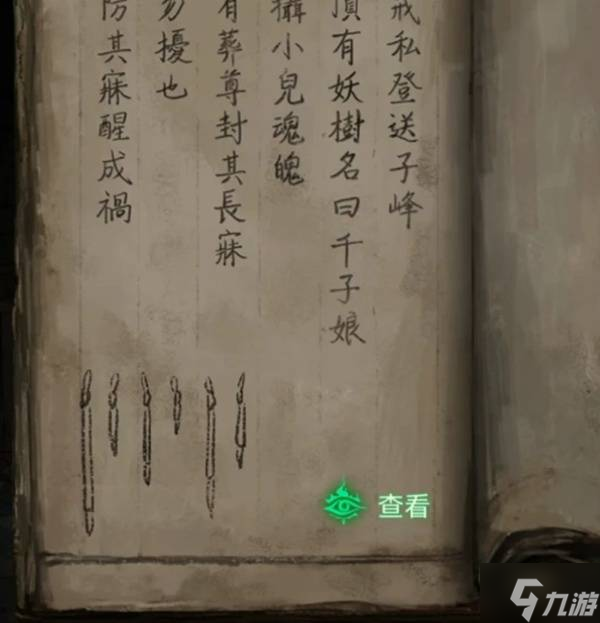 戒私登送子峰
頂有妖樹名曰千子娘
攝小兒魂魄
有葬尊封其長寐
勿擾也
防其寐醒成禍
查看
九游